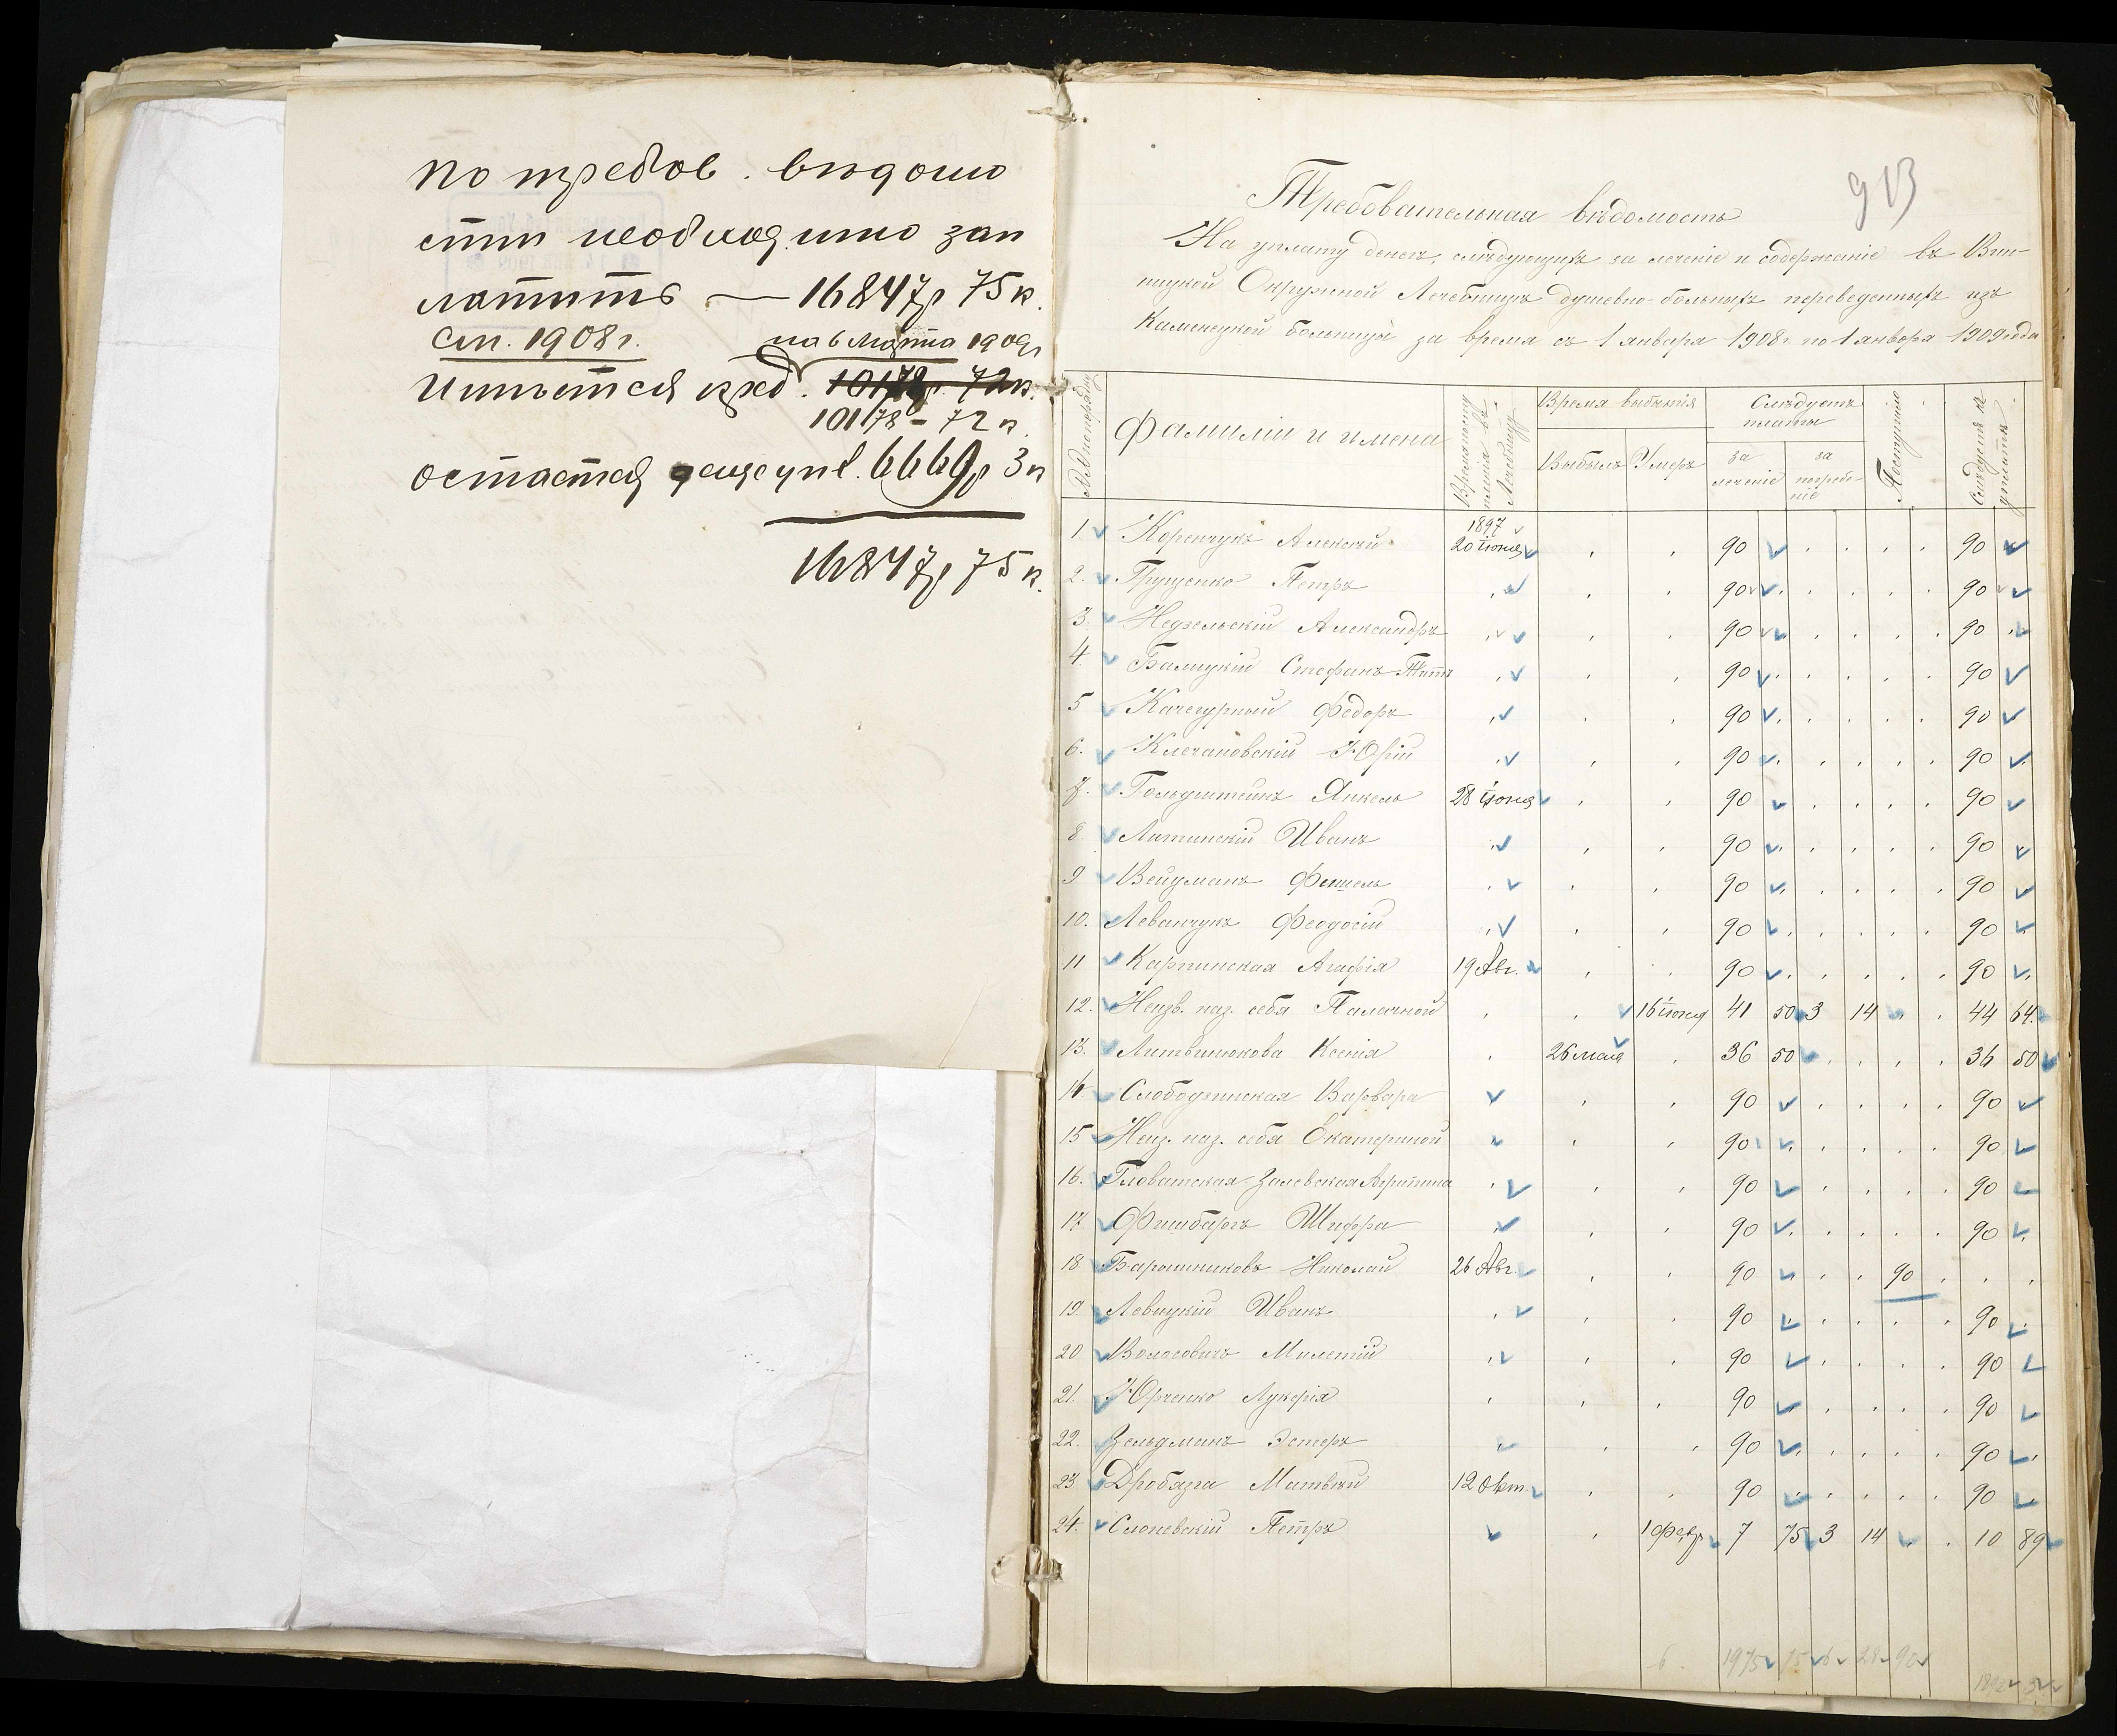 по требов. ведомо
сти необходимо зап
латить — 16847р 75к.
см. 1908г. на 6 Марта 1909г
Имѣется кред. 10178р. 72к.
10178 - 72к.
остается еще упл. 6669р 3к
16847р 75к.
913
Требовательная вѣдомость
На уплату денегъ, слѣдующихъ за леченіе и содержаніе въ Вин-
ницкой Окружной Лечебницѣ душевно-больныхъ переведенныхъ изъ
Каменецкой больницы за время съ 1 января 1908г. по 1 января 1909 года
№№ по порядку Фамиліи и имена Время посту-пленія въ Лечебницу Время выбытія Слѣдуетъ платы Поступило Слѣдуетъ къ уплатѣ
Выбылъ Умеръ за леченіе за погребе-ніе
1. Коренчукъ Алексѣй 1897 20 іюня 90 90
2. Грущенко Петръ 90 90
3. Недзельскій Александръ 90 90
4. Балицкій Стефанъ-Титъ 90 90
5 Качегурный Федоръ 90 90
6. Клечановскій Юрій 90 90
7. Гольдштейнъ Янкель 28 іюня 90 90
8. Литинскій Иванъ 90 90
9 Вейцманъ Фишель 90 90
10. Леванчукъ Феодосій 90 90
11 Карпинская Агафія 19 Авг. 90 90
12. Неизв. наз. себя Палачной 16 іюня 41 50 3 14 44 64.
13. Литвинюкова Ксенія 26 мая 36 50 36 50
14. Слободзинская Варвара 90 90
15 Неиз. наз. себя Екатериной 90 90
16. Гловатская-Залевская Агрипина 90 90
17 Фишбаргъ Шифра 90 90
18 Барошниковъ Николай 26 Авг. 90 90
19. Левицкій Иванъ 90 90
20 Волосовичъ Милетій 90 90
21. Юрченко Лукерія 90 90
22. Зельдманъ Эстеръ 90 90
23 Дробязга Матвѣй 12 Окт. 90 90
24. Слоневскій Петръ 1 Февр. 7 75 3 14 10 89
6. 1975 75 6 28 90